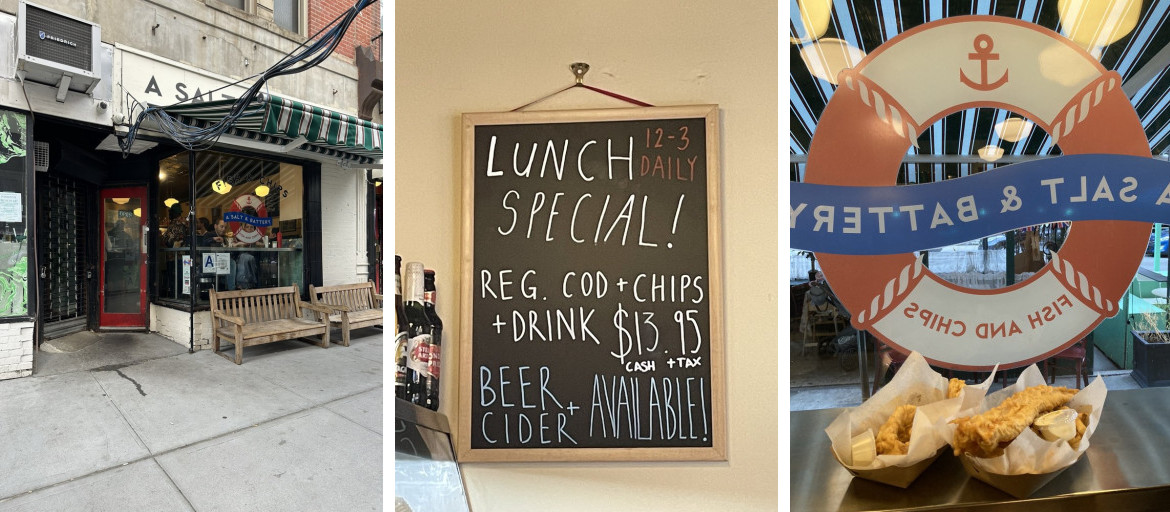 FRIEDRICH
A SALT
A SALT & BATTERY
A
LUNCH 12-3
DAILY
SPECIAL!
REG. COD + CHIPS
+ DRINK $13.95
CASH + TAX
BEER + CIDER AVAILABLE!
A SALT & BATTERY
FISH AND CHIPS